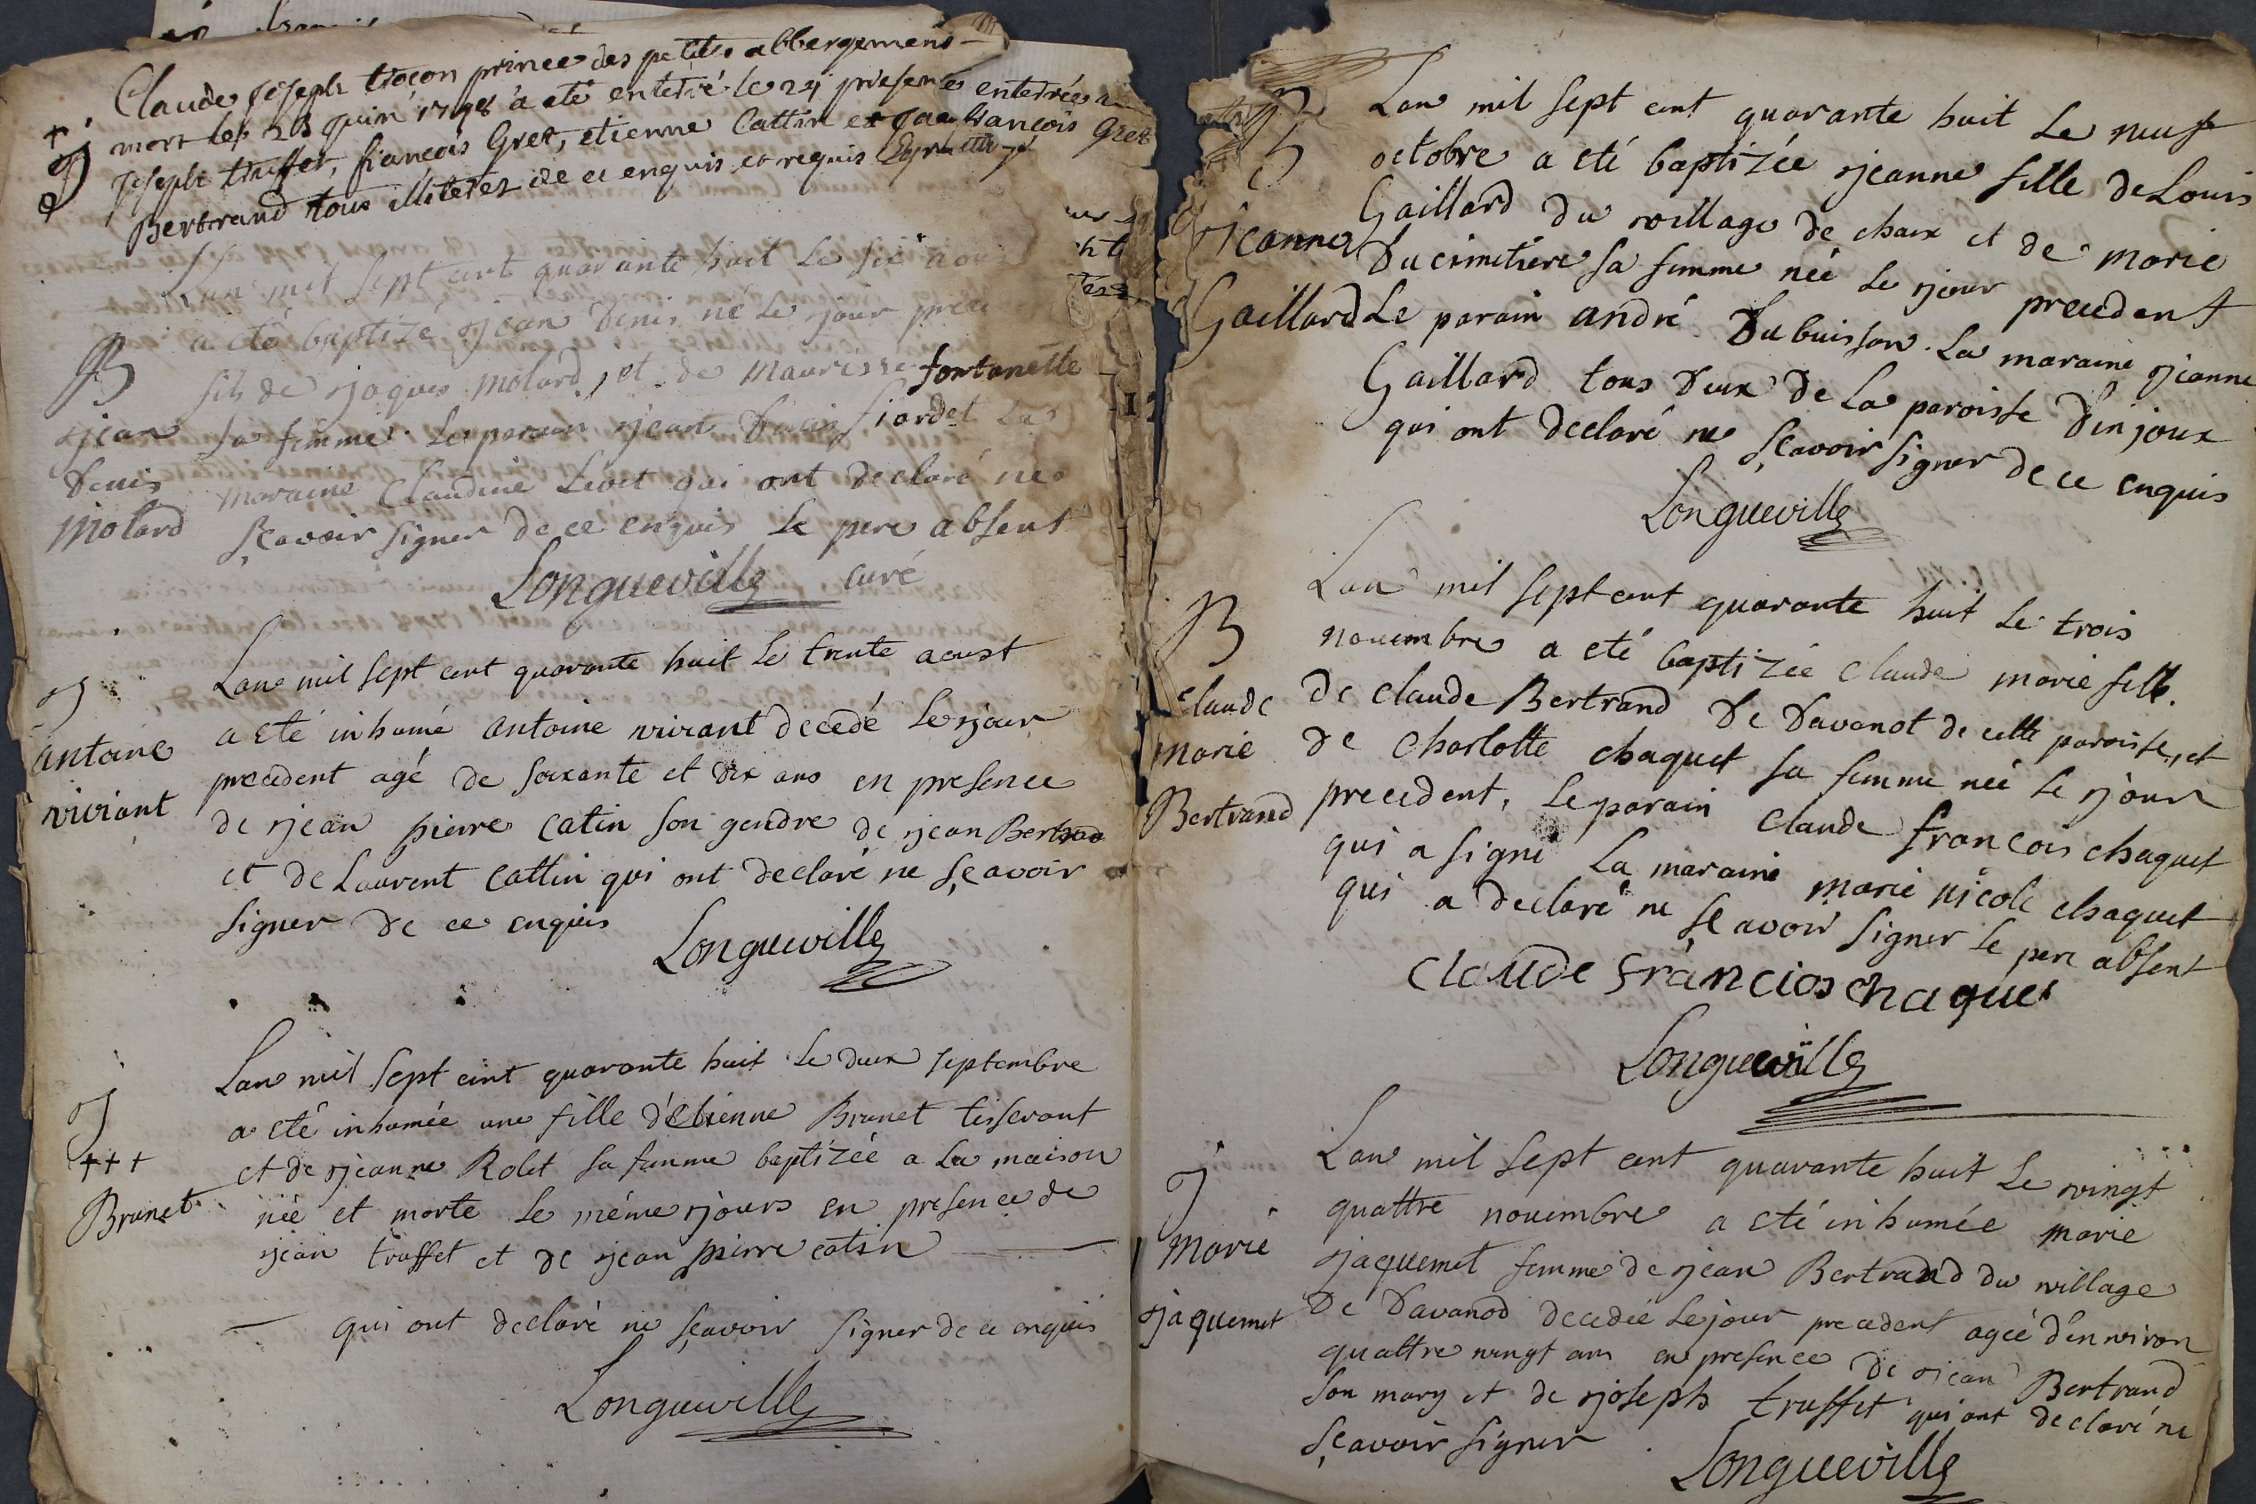 Claude joseph trocon princé des petits abbergemens
mort les 23 juin 1748 a eté enterré le 24 presens enterrée
joseph truffet, francois Gret, etienne Cattin et francois Gret
Bertrand tous illiterez de ce enquis et requis
Lan mil sept cent quarante huit le six
a eté baptizé jean Denis né le jour
fils de jaques molard, et de Maurisse fontanette
jean
sa femme. Le parain jean Denis Jiordet La
Denis
maraine Claudine Livet qui ont declaré ne
molard
sçavoir signer de ce enquis Le pere absent
Longueville curé
Lan mil sept cent quarante huit le trente aoust
antoine
a eté inhumé antoine vivant decedé le jour
viviant
precedent agé de soixante et dix ans en presence
de jean pierre catin son gendre de jean Bertrand
et de Laurent cattin qui ont declaré ne sçavoir
signer de ce enquis
Longueville
Lan mil sept cent quarante huit le deux septembre
a eté inhumée une fille d'etienne Brunet tisserant
+++
et de jeanne Rolet sa femme baptizée a la maison
Brunet
née et morte le même jours en presence de
jean truffet et de jean pierre catin
qui ont declaré ne sçavoir signer de ce enquis
Longueville
Lan mil sept cent quarante huit le neuf
B
octobre a eté baptizée jeanne fille de Louis
Gaillard du village de chaix et de marie
jeanne
Ducimetiere sa femme née le jour precedent
Gaillard
Le parain andré Dubuisson. La maraine jeanne
Gaillard tous deux de La paroisse d'injoux
qui ont declaré ne sçavoir signer de ce enquis
Longueville
Lan mil sept cent quarante huit le trois
B
novembre a eté baptizée claude marie fille
claude
de claude Bertrand de Davanot de cette paroisse, et
marie
de charlotte chaquet sa femme née le jour
Bertrand
precedent, le parain claude francois chaquet
qui a signé La maraine marie nicole chaquet
qui a declaré ne sçavoir signer le pere absent
claude francios chaquet
Longueville
Lan mil sept cent quarante huit le vingt
quattre novembre a eté inhumée marie
marie
jaquemet femme de jean Bertrand du village
jaquemet
de Davanod decedée le jour precedent agée d'environ
quattre vingt ans en presence de jean Bertrand
son mary et de joseph truffet qui ont declaré ne
sçavoir signer
Longueville